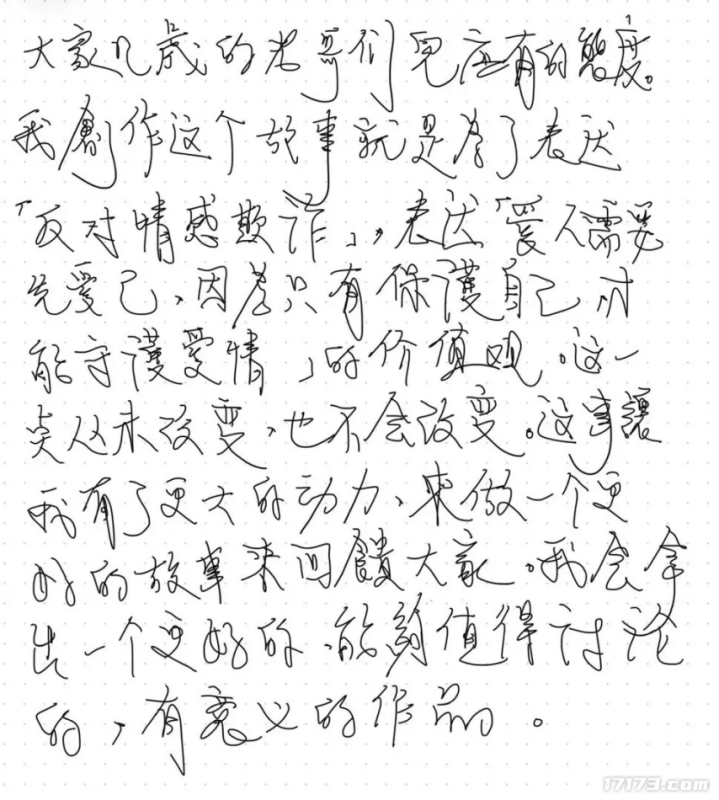 大家几歲的老哥们兒应有的態度。
我創作这个故事就是為了表达
「反对情感欺诈」，表达「愛人需要
先愛己、因為只有保護自己、才
能守護爱情」的价值观。这一
点从未改变，也不会改变。这事讓
我有了更大的动力、來做一个更
好的故事来回饋大家。我会拿
出一个更好的、能夠值得讨论
的，有意义的作品。
17173.com